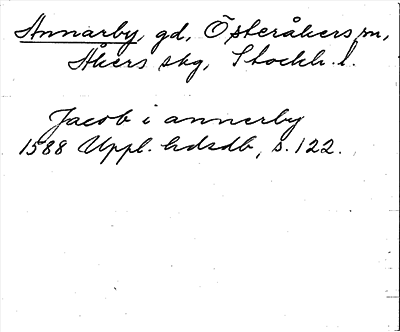 Annarby, gd, Österåkers sn,
Åkers skg, Stockh. l.
Jacob i annerby
1588 Uppl. hdsdb, s. 122.